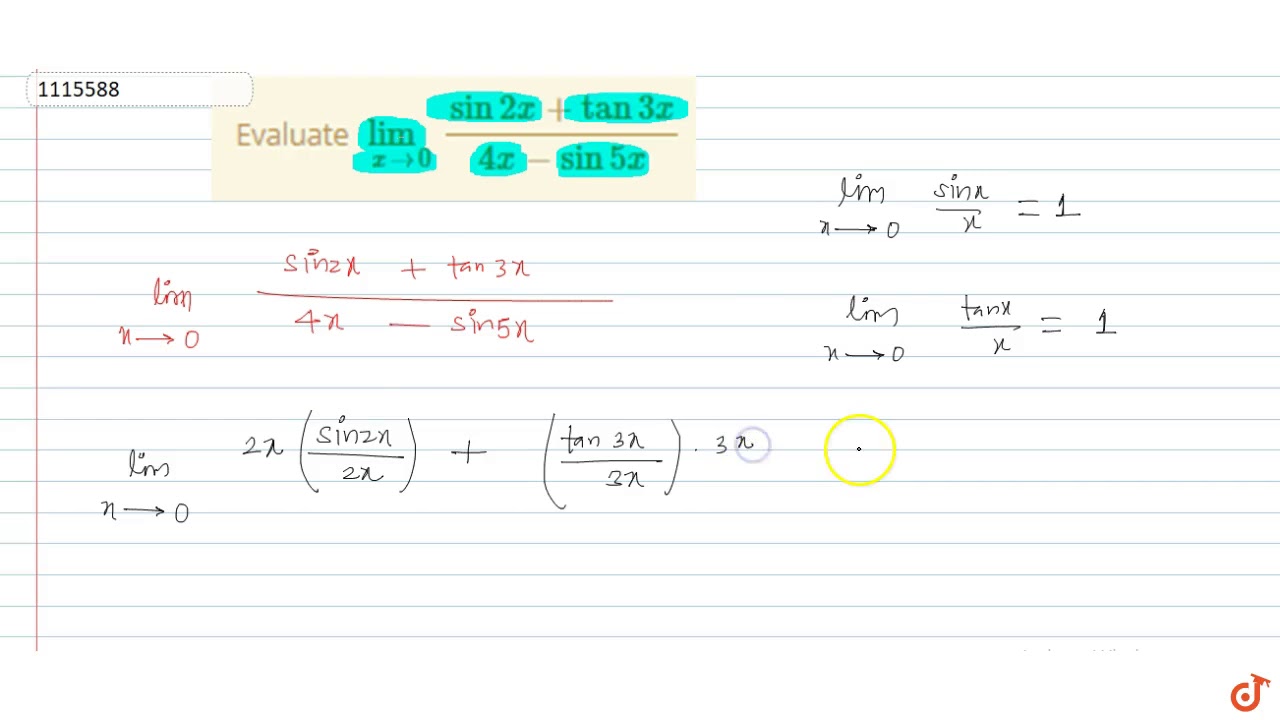 1115588
Evaluate lim x→0 (sin 2x + tan 3x)/(4x − sin 5x)
lim x→0 sinx/x = 1
lim x→0 (sin2x + tan 3x)/(4x − sin5x)
lim x→0 tanx/x = 1
lim x→0 2x (sin2x/2x) + (tan 3x/3x) . 3x